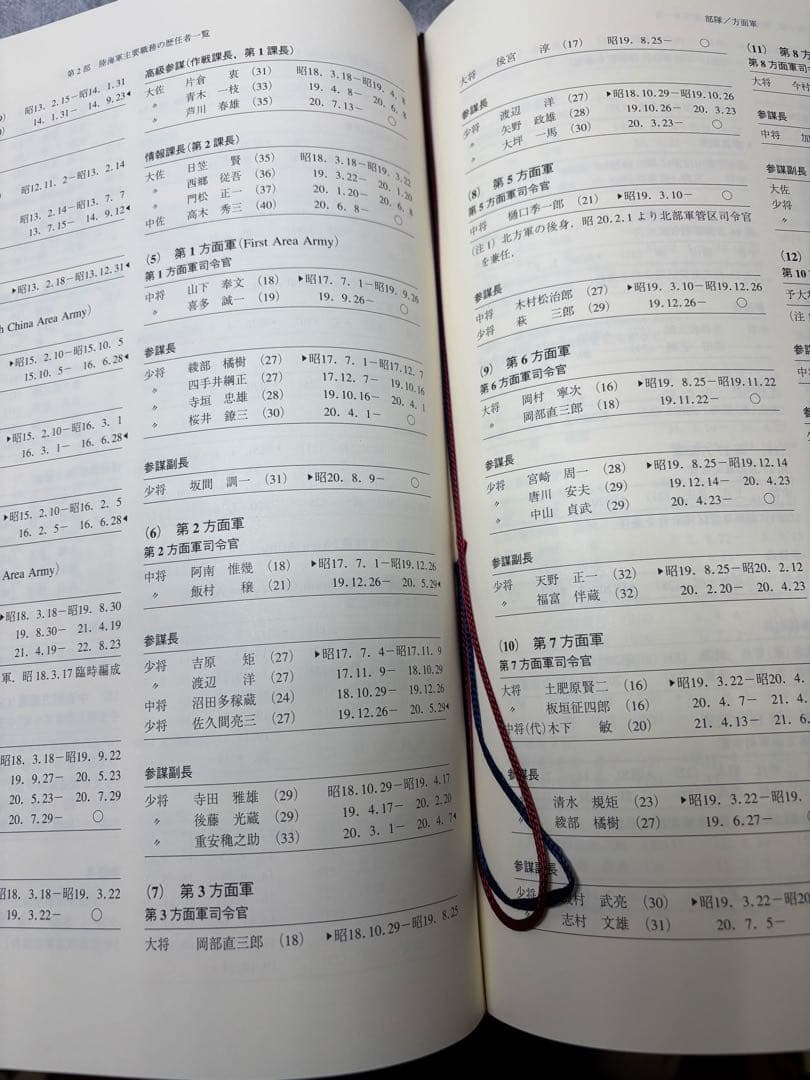 第2部 陸海軍主要職務の歴任者一覧
昭13. 2.15−昭14. 1.31
14. 1.31− 14. 9.23◂
昭12.11. 2−昭13. 2.14
昭13. 2.14−昭13. 7. 7
13. 7.15− 14. 9.12◂
▸昭13. 2.18−昭13.12.31◂
h China Area Army)
▸昭15. 2.10−昭15.10. 5
15.10. 5− 16. 6.28◂
▸昭15. 2.10−昭16. 3. 1
16. 3. 1− 16. 6.28◂
▸昭15. 2.10−昭16. 2. 5
16. 2. 5− 16. 6.28◂
Area Army)
▸昭18. 3.18−昭19. 8.30
19. 8.30− 21. 4.19
21. 4.19− 22. 8.23
軍．昭18.3.17臨時編成
昭18. 3.18−昭19. 9.22
19. 9.27− 20. 5.23
20. 5.23− 20. 7.29
20. 7.29− ○
昭18. 3.18−昭19. 3.22
19. 3.22− ○
高級参謀(作戦課長，第1課長)
大佐 片倉 衷 (31) 昭18. 3.18−昭19. 4. 8
〃 青木 一枝 (33) 19. 4. 8− 20. 6. 8
〃 芦川 春雄 (35) 20. 7.13− ○
情報課長(第2課長)
大佐 日笠 賢 (35) 昭18. 3.18−昭19. 3.22
〃 西郷 従吾 (36) 19. 3.22− 20. 1.20
〃 門松 正一 (37) 20. 1.20− 20. 6. 8
中佐 高木 秀三 (40) 20. 6. 8− ○
(5) 第1方面軍(First Area Army)
第1方面軍司令官
中将 山下 奉文 (18) ▸昭17. 7. 1−昭19. 9.26
〃 喜多 誠一 (19) 19. 9.26− ○
参謀長
少将 綾部 橘樹 (27) ▸昭17. 7. 1−昭17.12. 7
〃 四手井綱正 (27) 17.12. 7− 19.10.16
〃 寺垣 忠雄 (28) 19.10.16− 20. 4. 1
〃 桜井 鐐三 (30) 20. 4. 1− ○
参謀副長
少将 坂間 訓一 (31) ▸昭20. 8. 9− ○
(6) 第2方面軍
第2方面軍司令官
中将 阿南 惟幾 (18) ▸昭17. 7. 1−昭19.12.26
〃 飯村 穣 (21) 19.12.26− 20. 5.29◂
参謀長
少将 吉原 矩 (27) ▸昭17. 7. 4−昭17.11. 9
〃 渡辺 洋 (27) 17.11. 9− 18.10.29
中将 沼田多稼蔵 (24) 18.10.29− 19.12.26
少将 佐久間亮三 (27) 19.12.26− 20. 5.29◂
参謀副長
少将 寺田 雅雄 (29) 昭18.10.29−昭19. 4.17
〃 後藤 光蔵 (29) 19. 4.17− 20. 2.20
〃 重安穐之助 (33) 20. 3. 1− 20. 4. 7◂
(7) 第3方面軍
第3方面軍司令官
大将 岡部直三郎 (18) ▸昭18.10.29−昭19. 8.25
部隊／方面軍
大将 後宮 淳 (17) 昭19. 8.25− ○
参謀長
少将 渡辺 洋 (27) ▸昭18.10.29−昭19.10.26
〃 矢野 政雄 (28) 19.10.26− 20. 3.23
〃 大坪 一馬 (30) 20. 3.23− ○
(8) 第5方面軍
第5方面軍司令官
中将 樋口季一郎 (21) ▸昭19. 3.10− ○
(注1) 北方軍の後身．昭20.2.1より北部軍管区司令官
を兼任．
参謀長
中将 木村松治郎 (27) ▸昭19. 3.10−昭19.12.26
少将 萩 三郎 (29) 19.12.26− ○
(9) 第6方面軍
第6方面軍司令官
大将 岡村 寧次 (16) ▸昭19. 8.25−昭19.11.22
〃 岡部直三郎 (18) 19.11.22− ○
参謀長
少将 宮崎 周一 (28) ▸昭19. 8.25−昭19.12.14
〃 唐川 安夫 (29) 19.12.14− 20. 4.23
〃 中山 貞武 (29) 20. 4.23− ○
参謀副長
少将 天野 正一 (32) ▸昭19. 8.25−昭20. 2.12
〃 福富 伴蔵 (32) 20. 2.20− 20. 4.23
(10) 第7方面軍
第7方面軍司令官
大将 土肥原賢二 (16) ▸昭19. 3.22−昭20. 4.
〃 板垣征四郎 (16) 20. 4. 7− 21. 4.
中将(代)木下 敏 (20) 21. 4.13− 21. 6.
参謀長
清水 規矩 (23) ▸昭19. 3.22−昭19.
〃 綾部 橘樹 (27) 19. 6.27− ○
参謀副長
少将 村 武亮 (30) ▸昭19. 3.22−昭20
志村 文雄 (31) 20. 7. 5−
(11) 第8方
第8方面軍
大将 今村
参謀長
中将 加
参謀副
大佐
少将
(12)
第10
予大
(注
参
中